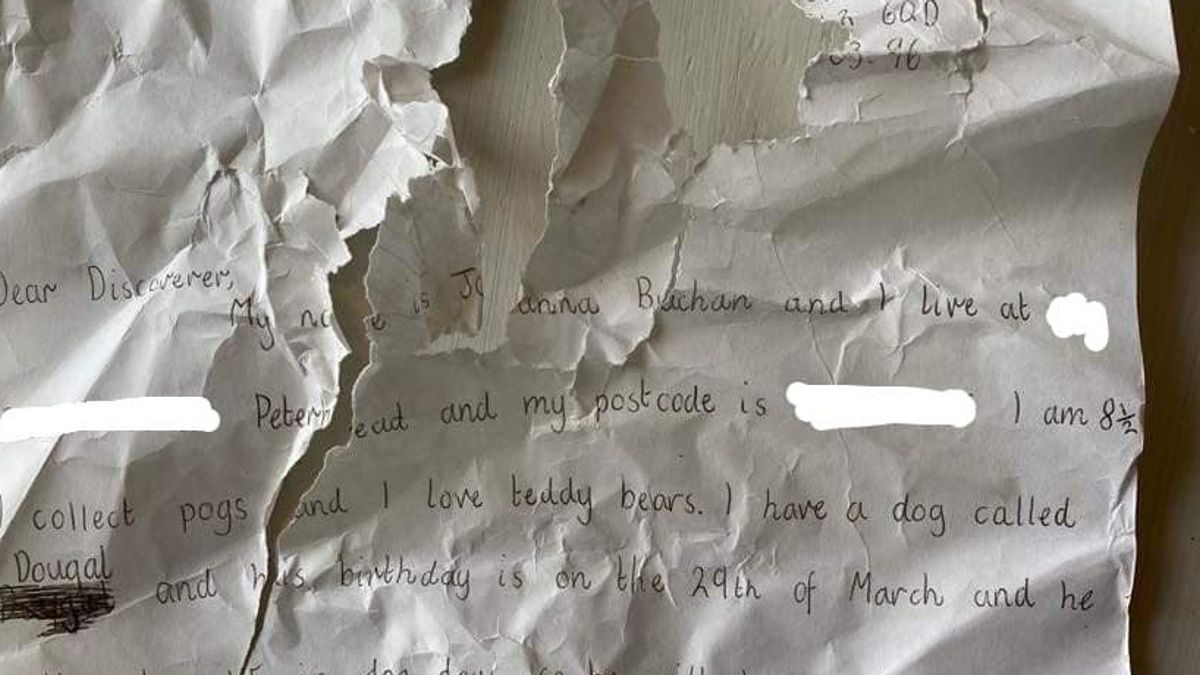 6QD
03. 96
Dear Discoverer,
My na e is Jo anna Buchan and I live at
Peterh ead and my postcode is I am 8½
I collect pogs and I love teddy bears. I have a dog called
Dougal
and his birthday is on the 29th of March and he
in dog days so he